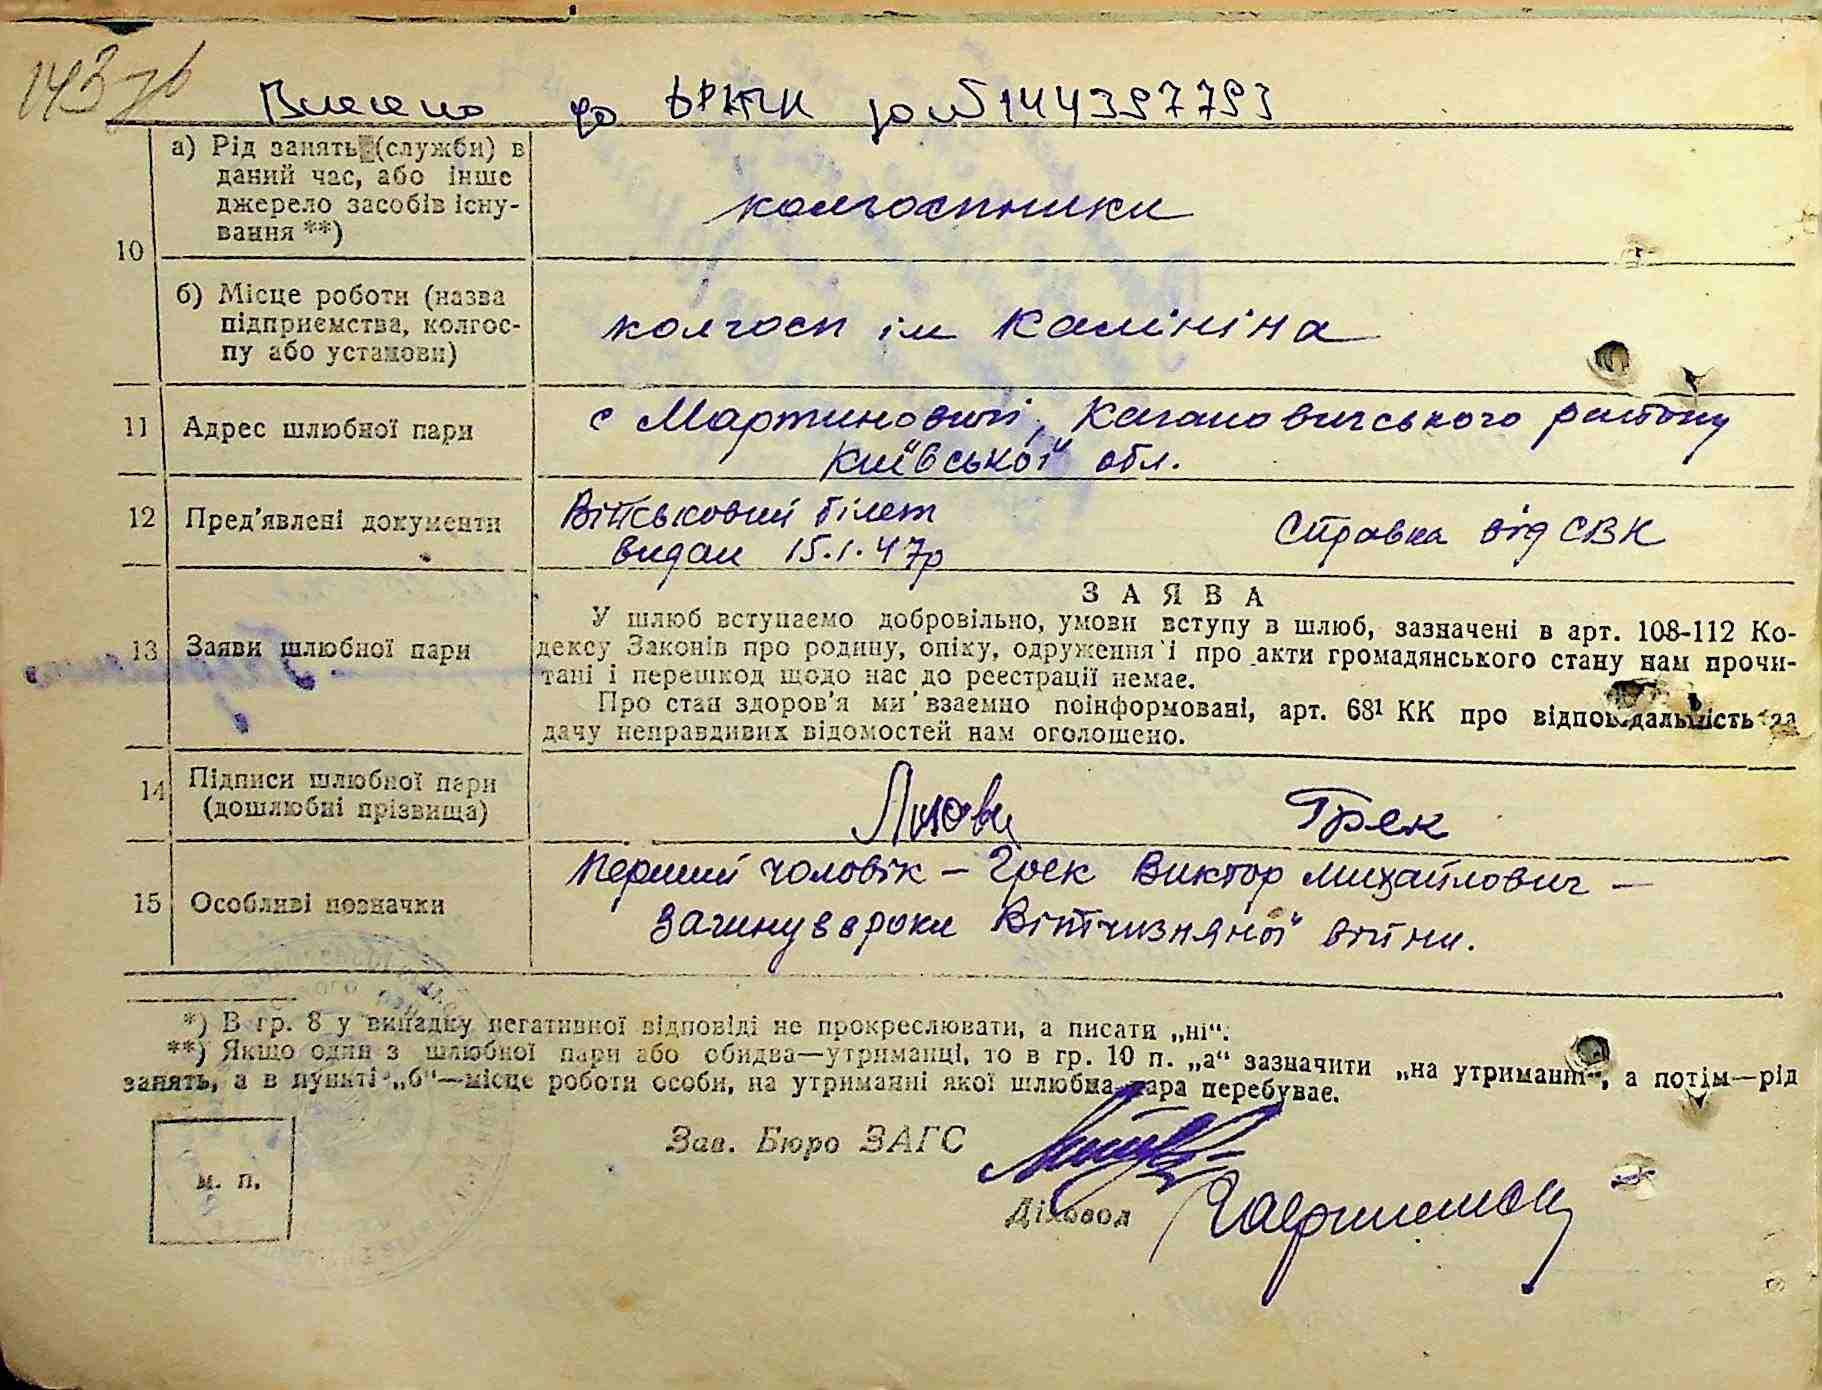 143зв
Внесено до ДРАЦС за №144397793
а) Рід занять (служби) в
даний час, або інше
джерело засобів існу-
вання **)
10
колгоспники
б) Місце роботи (назва
підприємства, колгос-
пу або установи)
колгосп ім Калініна
11 Адрес шлюбної пари
с Мартиновичі, Кагановичського району
Київської обл.
12 Пред'явлені документи
Військовий білет
видан 15.1.47р
Справка від СВК
13 Заяви шлюбної пари
ЗАЯВА
У шлюб вступаємо добровільно, умови вступу в шлюб, зазначені в арт. 108-112 Ко-
дексу Законів про родину, опіку, одруження і про акти громадянського стану нам прочи-
тані і перешкод щодо нас до реєстрації немає.
Про стан здоров'я ми взаємно поінформовані, арт. 68¹ КК про відповідальність за
дачу неправдивих відомостей нам оголошено.
14 Підписи шлюбної пари
(дошлюбні прізвища)
Грек
15 Особливі позначки
Перший чоловік – Грек Виктор Михайлович –
загинув в роки Вітчизняної війни.
*) В гр. 8 у випадку негативної відповіді не прокреслювати, а писати „ні“.
**) Якщо один з шлюбної пари або обидва—утриманці, то в гр. 10 п. „а“ зазначити „на утриманні“, а потім—рід
занять, а в пункті „б“—місце роботи особи, на утриманні якої шлюбна пара перебуває.
м. п.
Зав. Бюро ЗАГС
Діловод